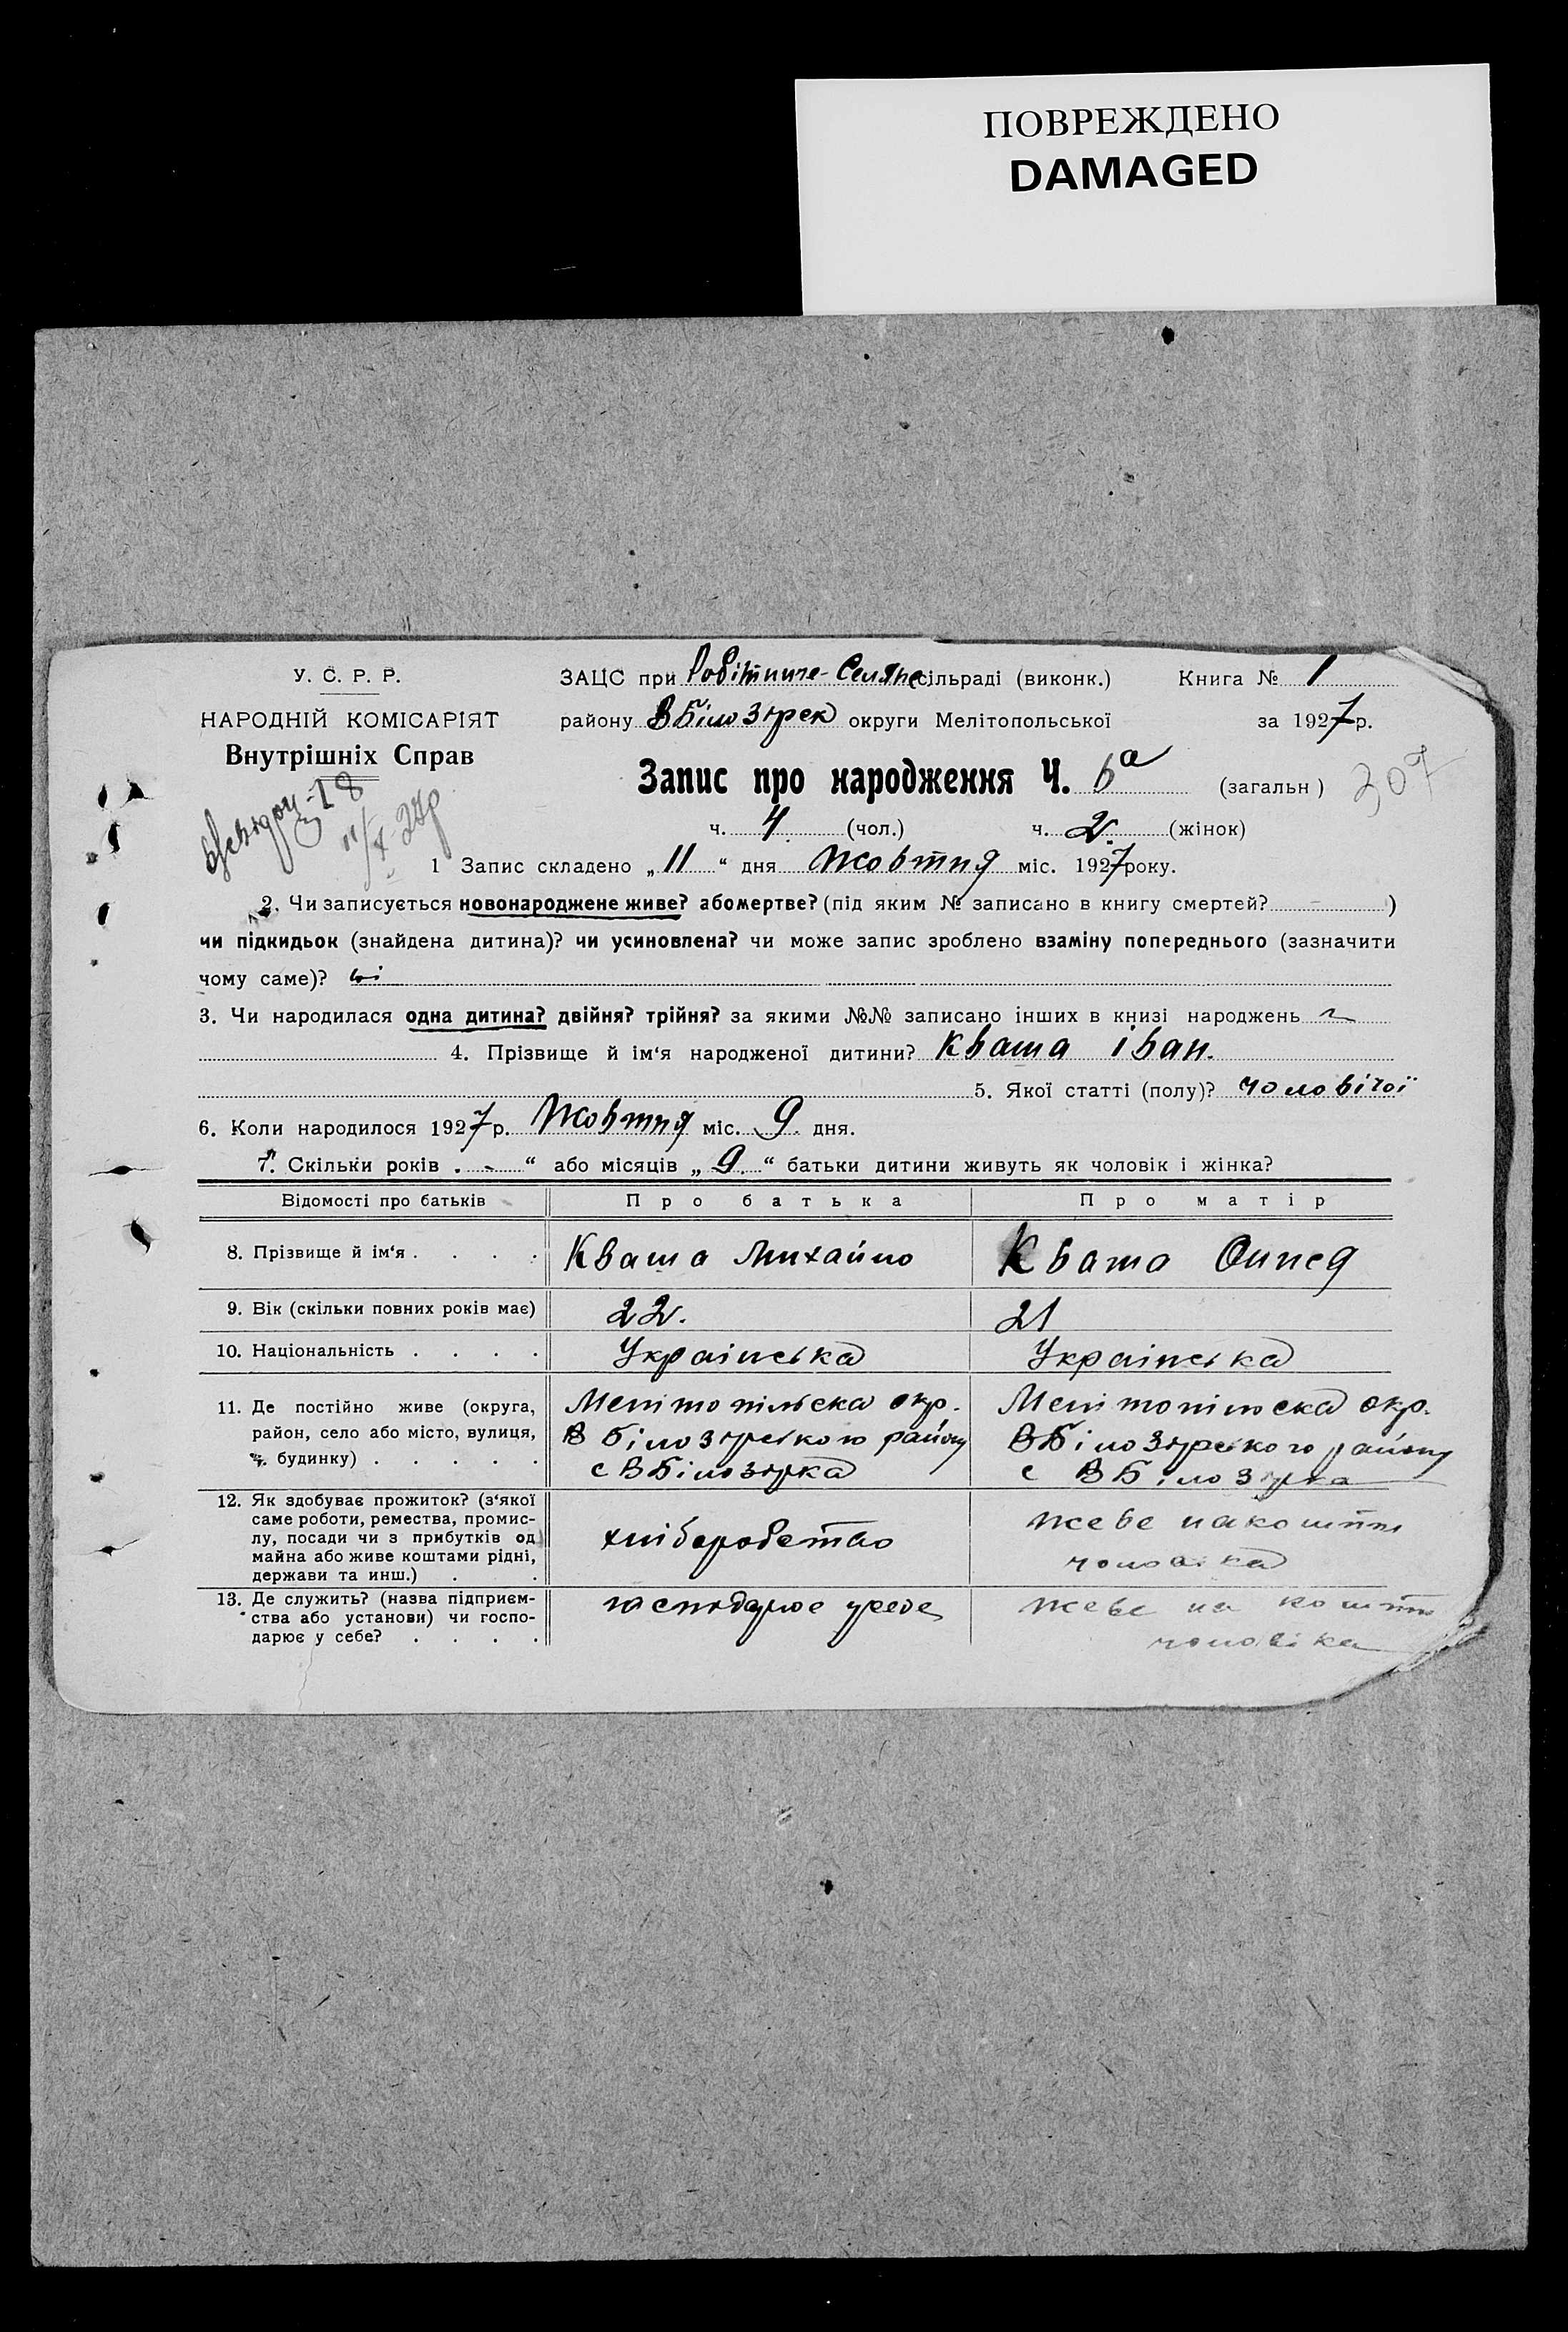 ПОВРЕЖДЕНО
DAMAGED
У. С. Р. Р.
НАРОДНІЙ КОМІСАРІЯТ
Внутрішніх Справ
ЗАЦС при Робітниче-Селянс. сільраді (виконк.) Книга № 1
району ВБілозірск округи Мелітопольської за 1927 р.
Запис про народження Ч. 6а (загальн) 307
ч. 4 (чол.) ч. 2. (жінок)
1 Запис складено „ 11 “ дня Жовтня міс. 1927 року.
2. Чи записується новонароджене живе? або мертве? (під яким № записано в книгу смертей? - )
чи підкидьок (знайдена дитина)? чи усиновлена? чи може запис зроблено взаміну попереднього (зазначити
чому саме)? ні
3. Чи народилася одна дитина? двійня? трійня? за якими №№ записано інших в книзі народжень
4. Прізвище й ім‘я народженої дитини? Кваша Іван.
5. Якої статті (полу)? чоловічої
6. Коли народилося 1927 р. Жовтня міс. 9 дня.
7. Скільки років - “ або місяців „ 9 “ батьки дитини живуть як чоловік і жінка?
Відомості про батьків Про батька Про матір
8. Прізвище й ім‘я . . . . Кваша Михайло Кваша
9. Вік (скільки повних років має) 22. 21
10. Національність . . . . Українська Українська
11. Де постійно живе (округа,
район, село або місто, вулиця,
ч. будинку) . . . . .
Мелітопільска окр.
ВБілозірського району
с ВБілозірка
Мелітопільска окр.
ВБілозірського району
с ВБілозірка
12. Як здобуває прожиток? (з‘якої
саме роботи, ремества, промис-
лу, посади чи з прибутків од
майна або живе коштами рідні,
держави та инш.) . .
хліборобство
жеве на кошти
чоловіка
13. Де служить? (назва підприєм-
ства або установи) чи госпо-
дарює у себе? . . . .
господарює усебе
жеве на кошти
чоловіка